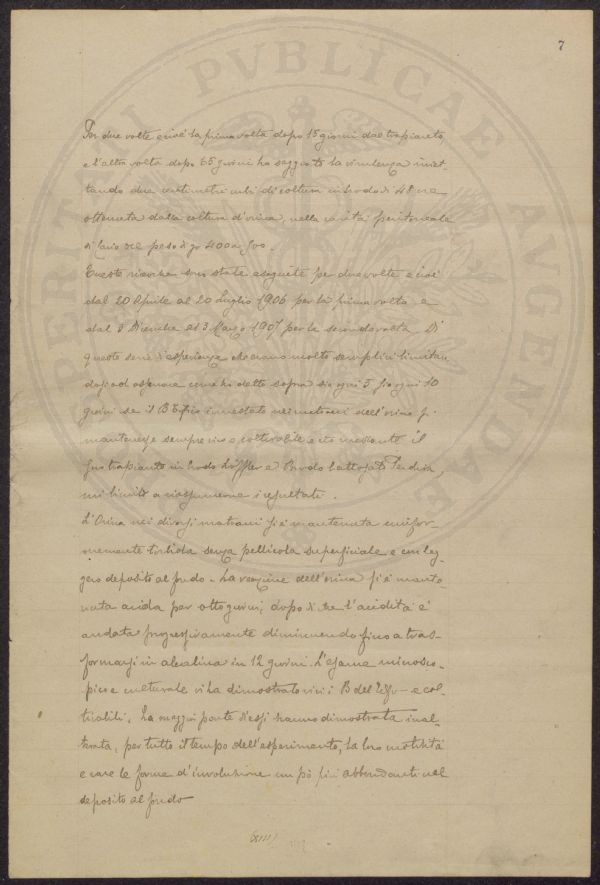 7
Per due volte e cioè la prima volta dopo 15 giorni dal trapianto,
e l'altra volta dopo 65 giorni ho saggiato la virulenza iniet-
tando due centimetri cubi di coltura in brodo di 48 ore
ottenuta dalla coltura d'orina, nella cavità peritoneale
di Cavie del peso di gr 400 a 500.
Queste ricerche sono state eseguite per due volte e cioè
dal 20 Aprile al 20 Luglio 1906 per la prima volta e
dal 3 Dicembre al 3 Marzo 1907 per la seconda volta. Di
queste serie d'esperienze che erano molto semplici limitan-
dosi ad osservare come ho detto sopra ogni 5 ogni 10
giorni se il B tifico innestato nei matracci dell'orina si
mantenesse sempre vivo e coltivabile e ciò mediante il
suo trapianto in brodo Löffler e Brodo lattosato
mi limito a riassumerne i resultati.
L'Orina nei diversi matracci si è mantenuta unifor-
memente torbida senza pellicola superficiale e con leg-
gero deposito al fondo. La reazione dell'orina si è mante-
nuta acida per otto giorni; dopo di che l'acidità è
andata progressivamente diminuendo fino a tras-
formarsi in alcalina in 12 giorni. L'esame microsco-
pico e culturale ci ha dimostrato vivi i B del Tifo e col-
tivabili. La maggior parte d'essi hanno dimostrata inal-
terata, per tutto il tempo dell'esperimento, la loro motilità
e rare le forme d'involuzione un pò più abbondanti nel
deposito al fondo